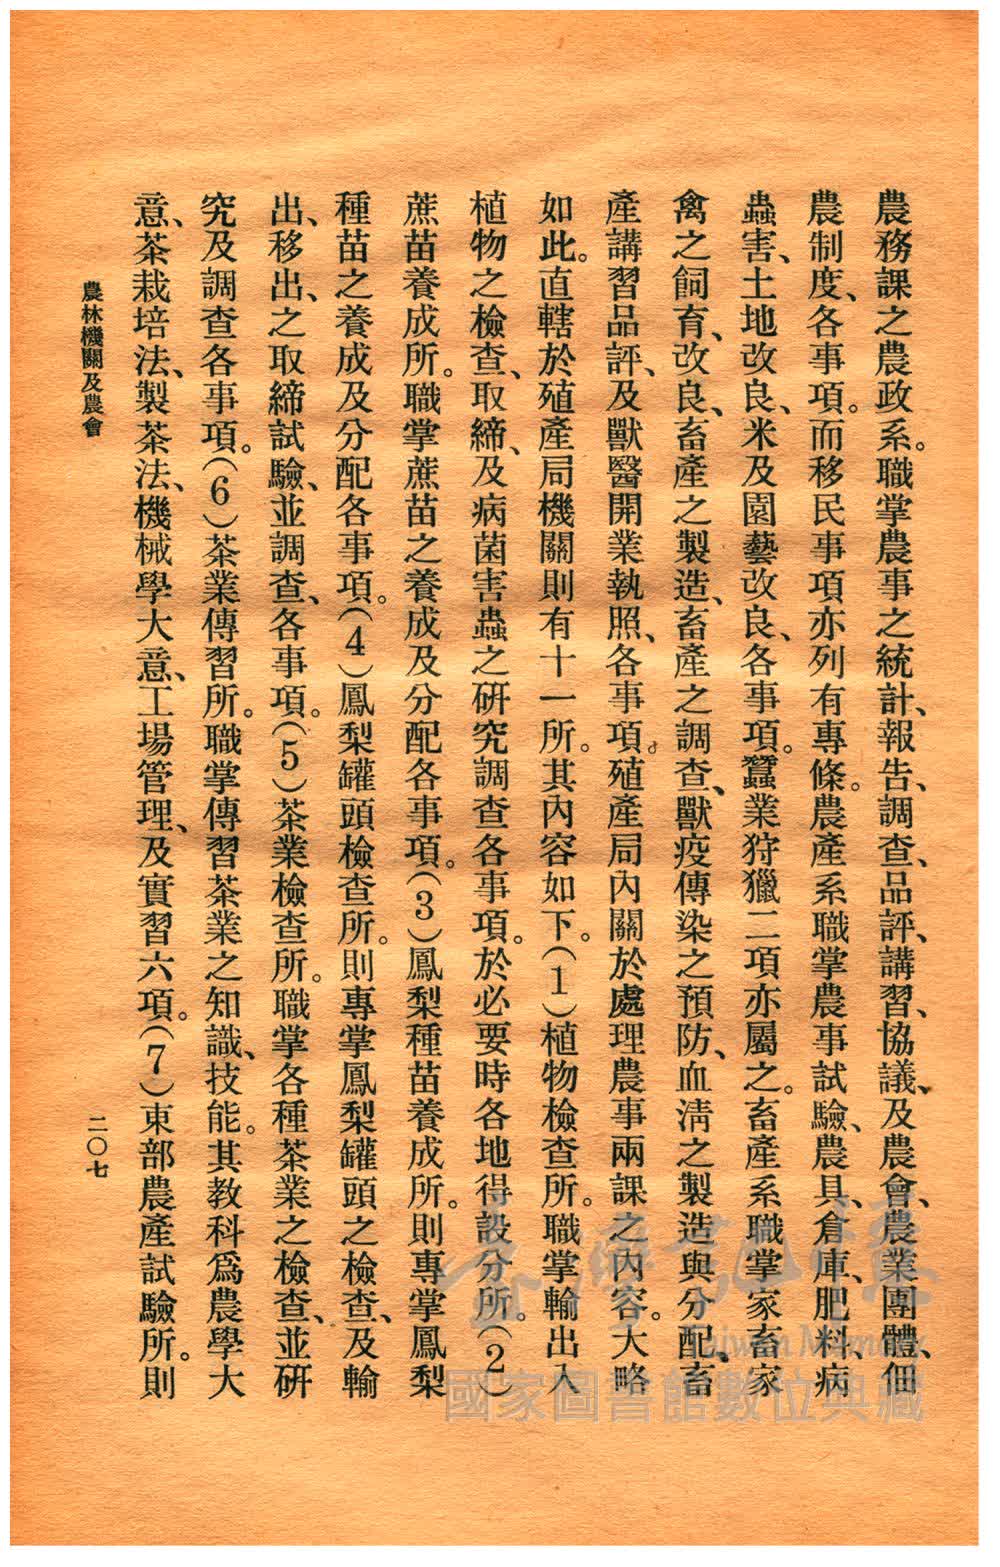 農務課之農政系。職掌農事之統計、報告、調查、品評、講習、協議、及農會、農業團體、佃
農制度、各事項。而移民事項亦列有專條。農產系職掌農事試驗、農具、倉庫、肥料、病
蟲害、土地改良、米及園藝改良、各事項。蠶業狩獵二項亦屬之。畜產系職掌家畜家
禽之飼育、改良、畜產之製造、畜產之調查、獸疫傳染之預防、血清之製造與分配、畜
產講習品評、及獸醫開業執照、各事項。殖產局內關於處理農事兩課之內容。大略
如此。直轄於殖產局機關則有十一所。其內容如下。(1)植物檢查所。職掌輸出入
植物之檢查、取締、及病菌害蟲之研究調查各事項。於必要時各地得設分所。(2)
蔗苗養成所。職掌蔗苗之養成及分配各事項。(3)鳳梨種苗養成所。則專掌鳳梨
種苗之養成及分配各事項。(4)鳳梨罐頭檢查所。則專掌鳳梨罐頭之檢查、及輸
出、移出、之取締試驗、並調查、各事項。(5)茶業檢查所。職掌各種茶業之檢查、並研
究及調查各事項。(6)茶業傳習所。職掌傳習茶業之知識、技能。其教科爲農學大
意、茶栽培法、製茶法、機械學大意、工場管理、及實習六項。(7)東部農產試驗所。則
農林機關及農會
二〇七
臺灣記憶
Taiwan Memory
國家圖書館數位典藏